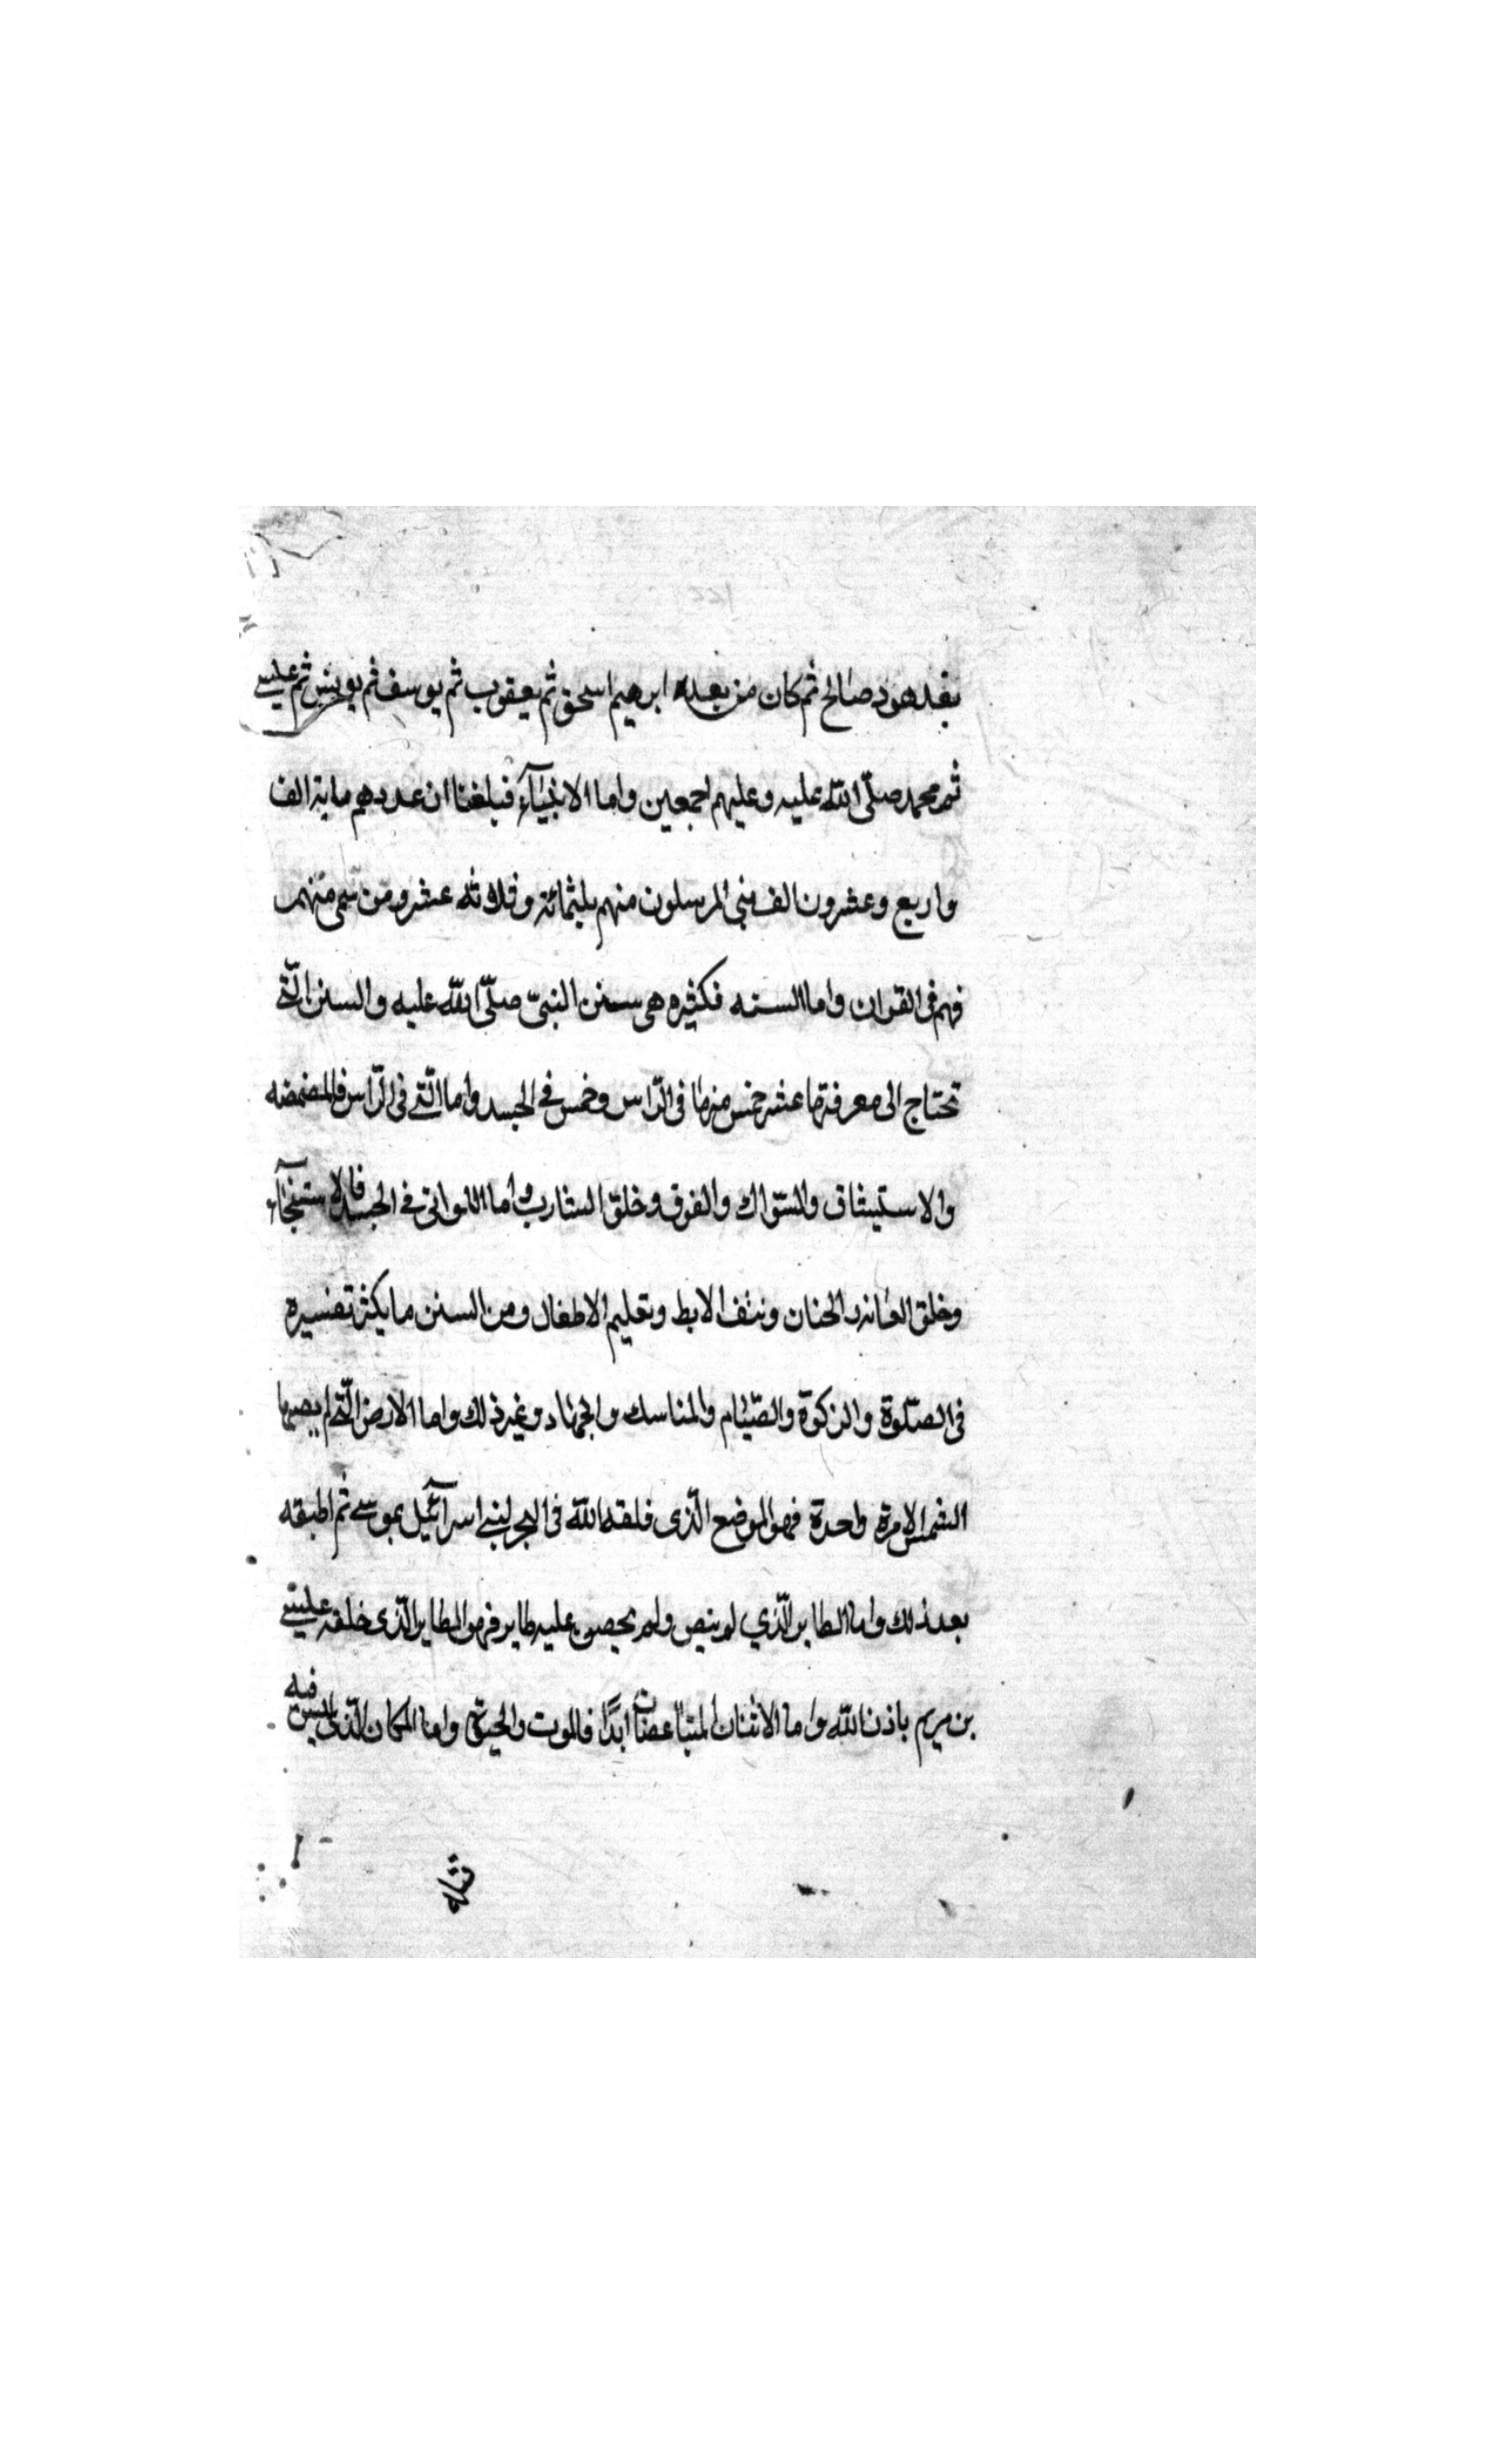 بعد هود صالح ثم كان من بعده ابرهيم اسحق ثم يعقوب ثم يوسف ثم يونس ثم عيسى
ثم محمد صلّى الله عليه وعليهم اجمعين واما الانبيآء فبلغنا ان عددهم ماية الف
واربع وعشرون الف نبي المرسلون منهم ثلثمائة وثلاثه عشر ومن سمى منهم
فهم فى القران واما السنه فكثيره هى سنن النبىّ صلّى الله عليه والسنن الّتى
تحتاج الى معرفتها عشر خمس منها فى الرّاس وخمس فى الجسد واما الّتى فى الرّاس فالمضمضه
والاستيشاق والسّواك والفرق وخلق الشارب واما اللواتى فى الجسد فالاستنجآء
وخلق العانه والختان ونتف الابط وتعليم الاطفال ومن السنن ما يكثر تفسيره
فى الصّلوة والزكوة والصّيام والمناسك والجهاد وغير ذلك واما الارض الّتى لم يصبها
الشمس الا مرة واحدة فهو الموضع الّذى فلقه الله فى البحر لبنى اسرآئيل بموسى ثم اطبقه
بعد ذلك واما الطاير الّذي لم ينص ولم يحصى عليه طاير فهو الطاير الّذى خلقه عيسى
بن مريم باذن الله واما الاثنان المتباعضان ابدًا فالموت والحيوة واما المكان الّذى ليس فيه